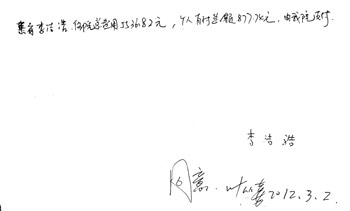 患者李浩浩，住院总费用5536.82元，个人自付总额877.74元，由我院须付
李浩浩
同意. 2012.3.2